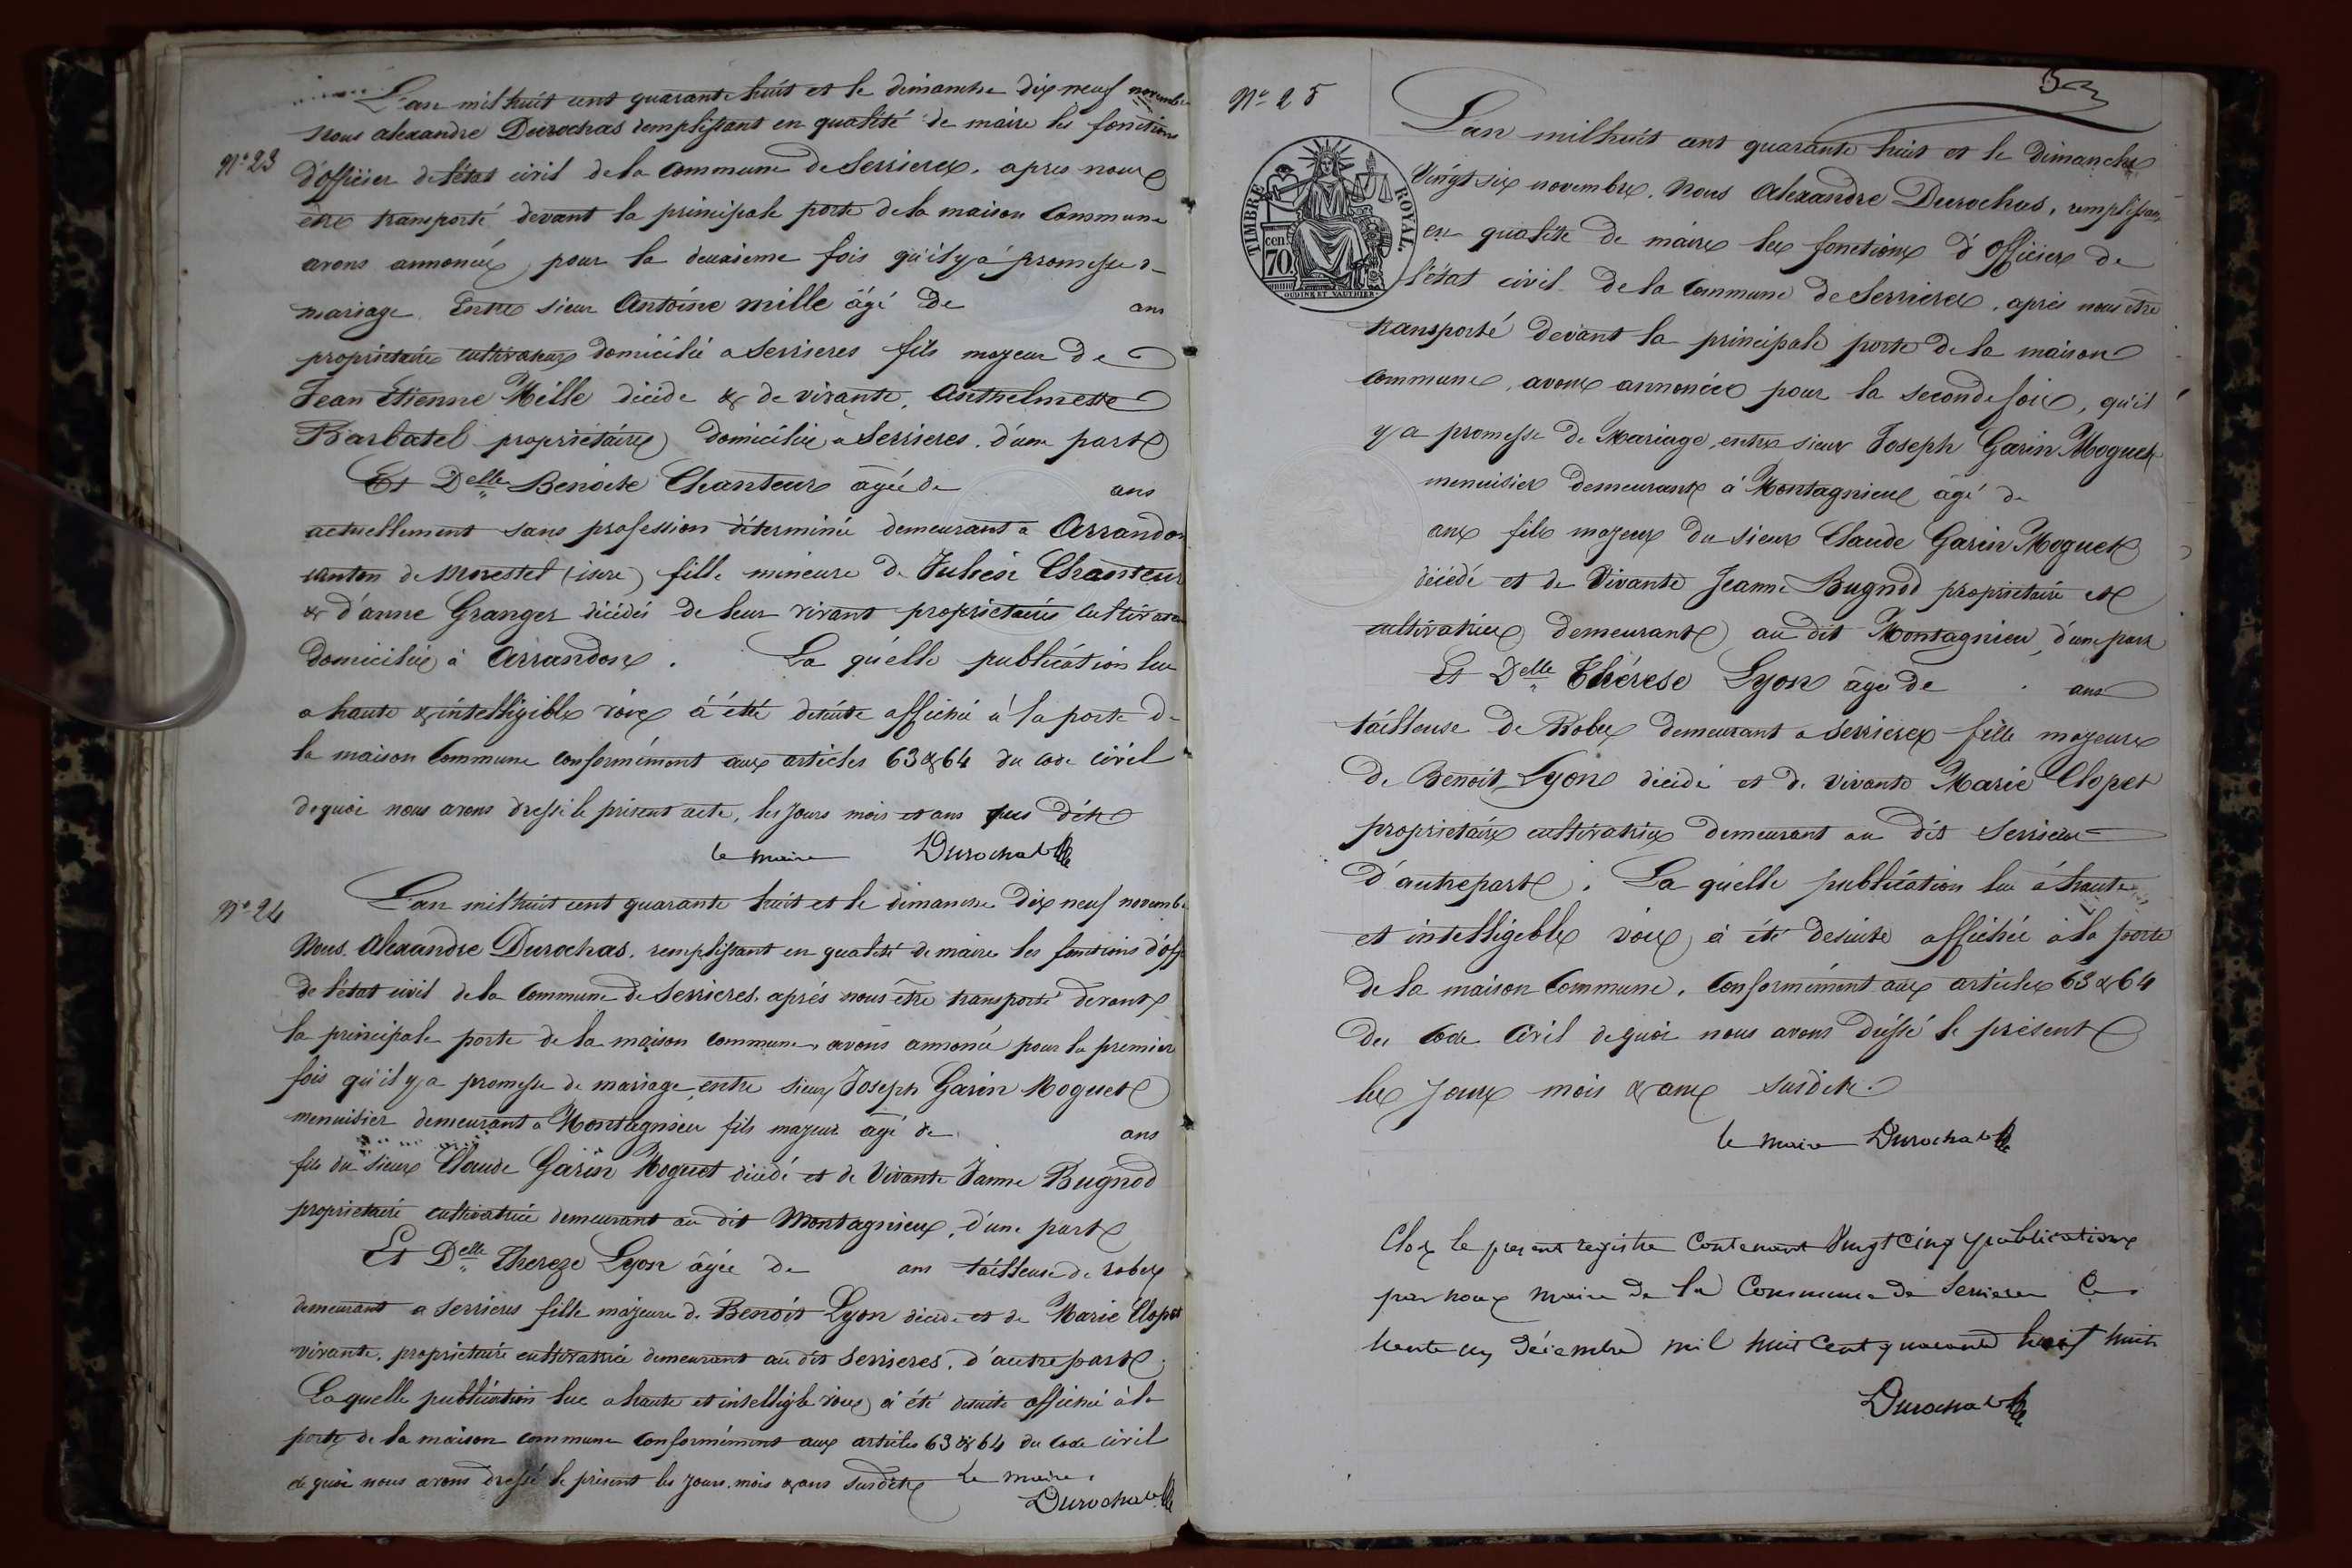 L'an mil huit cent quarante huit et le dimanche dix neuf novembre
nous alexandre Durochas remplissant en qualité de maire les fonctions
N° 23
d'officier de l'état civil de la Commune de Serrieres, apres nous
être transporté devant la principale porte de la maison Commune
avons annoncée pour la deuxieme fois qu'il y a promesse de
mariage. Entre sieur Antoine Mille âgé de ans
propriétaire cultivateur domicilié a Serrieres fils majeur de
Jean Etienne Mille décidé & de vivante, Anthelmette
Barbatel propriétaire domiciliée a Serrieres. d'une part
Et Delle Benoite Chanteur âgée de ans
actuellement sans profession déterminée demeurant a Arrandon
canton de Morestel (isere) fille mineure de Julien Chanteur
& d'anne Granger décédés de leur vivant proprietaires cultivateurs
domiciliés à Arrandon. La quélle publication lue
a haute & intelligible voix à été desuite affichée à la porte de
la maison Commune conformément aux articles 63 & 64 du code civil
de quoi nous avons dressé le présent acte, les jours mois et ans que dits
le maire Durochat
N° 24
L'an mil huit cent quarante huit et le dimanche Dix neuf novembre
Nous Alexandre Durochas, remplissant en qualité de maire les fonctions d'off
de l'état civil de la Commune de Serrieres, aprés nous être transporté devant
la principale porte de la maison commune, avons annoncé pour la premier
fois qu'il y a promesse de mariage, entre sieur Joseph Garin Moguet
menuisier demeurant a Montagnieu fils majeur âgé de ans
fils du sieur Claude Garin Moguet décédé et de Vivante Janne Bugnod
proprietaire cultivatrice demeurant au dit Montagnieu, d'une part
Et Delle Thereze Lyon âgée de ans tailleuse de robes
demeurant a Serrieres fille majeure de Benoit Lyon décidé et de Marie Clopet
vivante, proprietaire cultivatrice demeurant au dit Serrieres, d'autre part.
La quelle publication lue a haute et intelligible voix à été desuite affichée à la
porte de la maison commune conformément aux articles 63 & 64 du code civil
de quoi nous avons dressé le présent les jours, mois & ans susdits le maire,
Durochat
N° 25
TIMBRE ROYAL
cent. 70
OUDINÉ ET VAUTHIER
L'an mil huit cent quarante huit et le Dimanche
Vingt six novembre. Nous Alexandre Durochas, remplissant
en qualité de maire les fonctions d'officier de
l'état civil de la Commune de Serrieres, après nous être
transporté devant la principale porte de la maison
commune, avons annoncée pour la seconde fois, qu'il
y a promesse de Mariage, entre sieur Joseph Garin Moguet
menuisier demeurant à Montagnieu âgé de
ans fils majeur du sieur Claude Garin Moguet
décédé et de Vivante Jeanne Bugnod proprietaire et
cultivatrice demeurant au dit Montagnieu, d'une part
Et Delle Thérese Lyon âgée de ans
tailleuse de Robes demeurant a Serrieres fille majeure
de Benoit Lyon décidé et de vivante Marie Clopet
propriétaire cultivatrice demeurant au dit Serrieres
d'autre part. La quélle publication lue à haute
et intelligible voix à été desuite affichée à la porte
de la maison Commune, Conformément aux articles 63 & 64
du Code Civil de quoi nous avons dréssé le présent
les jours mois & ans susdits.
le maire Durochat
Clos le present registre contenant Vingt Cinq publications
par nous maire de la Commune de Serrieres Ce
trente un décembre mil huit cent quarante huit
Durochat